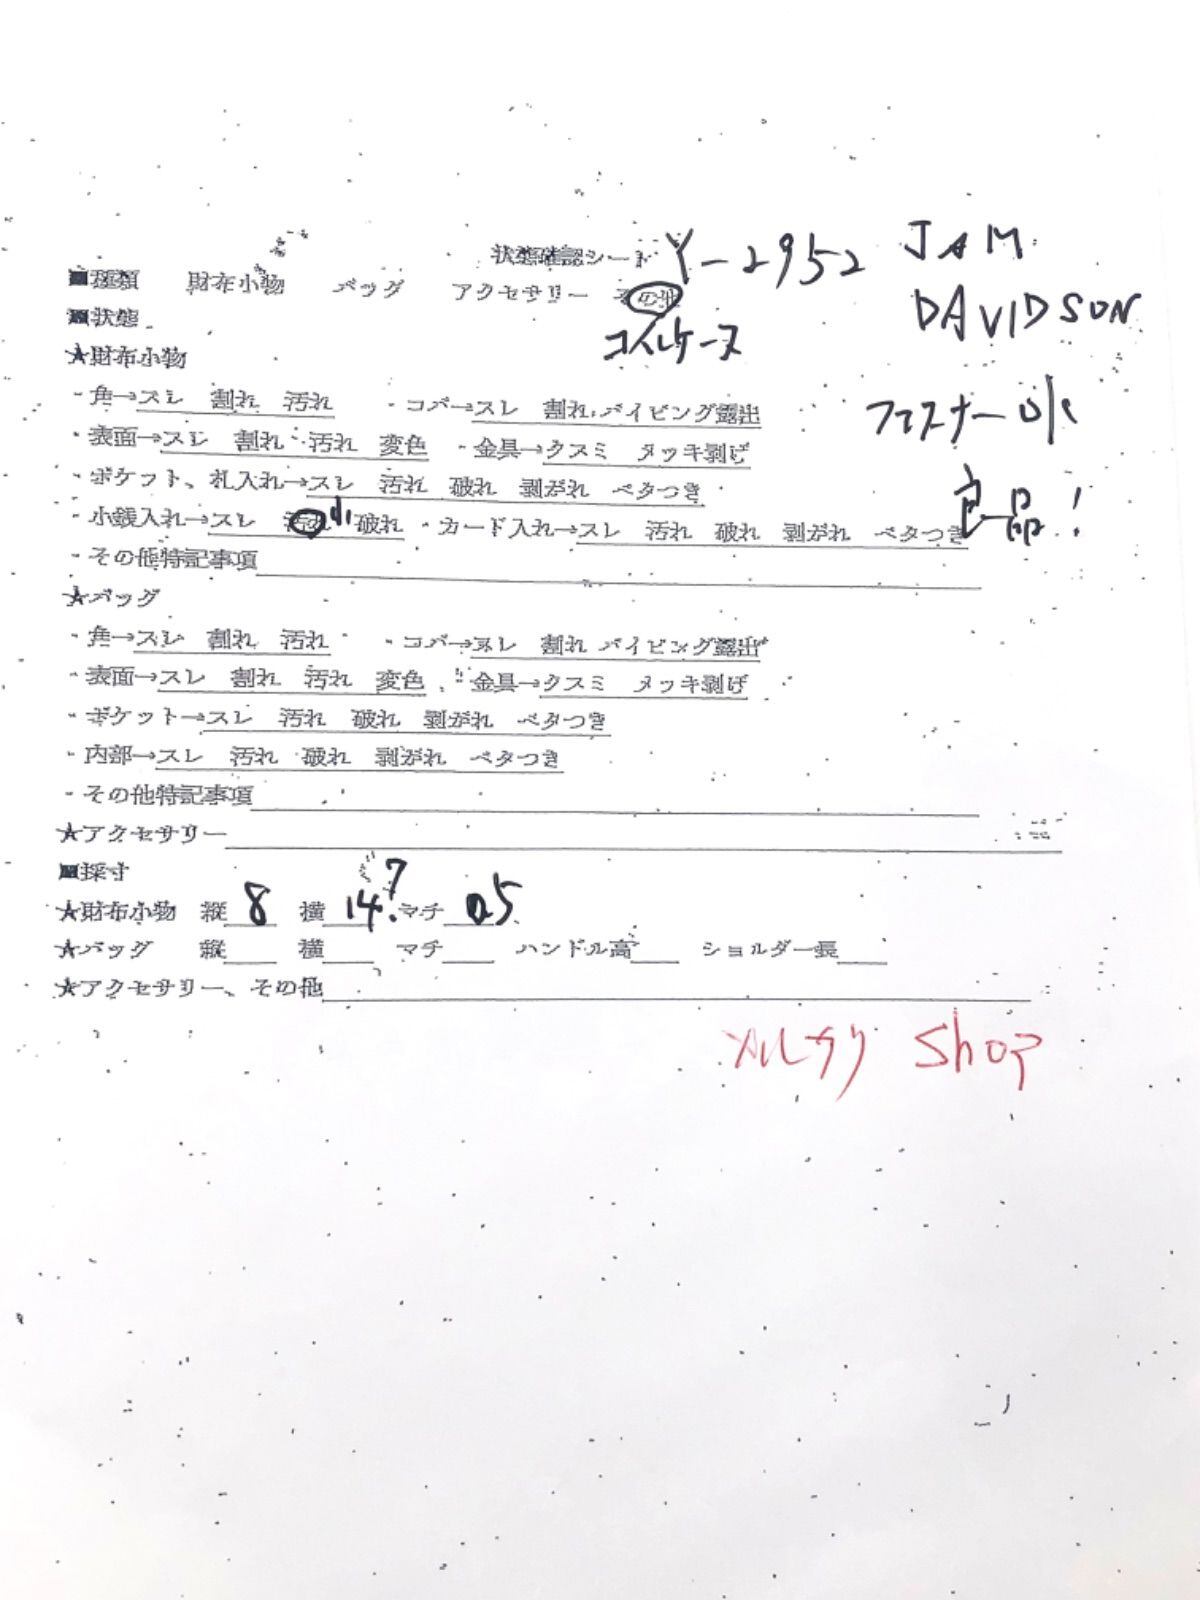 状態確認シート Y-2952 JAM
■種類 財布小物 バッグ アクセサリー その他 DAVIDSON
■状態 コインケース
★財布小物
・角→スレ 割れ 汚れ ・コバ→スレ 割れ パイピング露出 ファスナー ok
・表面→スレ 割れ 汚れ 変色 ・金具→クスミ メッキ剥げ
・ポケット、札入れ→スレ 汚れ 破れ 剥がれ ベタつき 良品!
・小銭入れ→スレ 汚れ小 破れ ・カード入れ→スレ 汚れ 破れ 剥がれ ベタつき
・その他特記事項
★バッグ
・角→スレ 割れ 汚れ ・コバ→スレ 割れ パイピング露出
・表面→スレ 割れ 汚れ 変色 ・金具→クスミ メッキ剥げ
・ポケット→スレ 汚れ 破れ 剥がれ ベタつき
・内部→スレ 汚れ 破れ 剥がれ ベタつき
・その他特記事項
★アクセサリー
■採寸
★財布小物 縦 8 横 14.7 マチ 0.5
★バッグ 縦 横 マチ ハンドル高 ショルダー長
★アクセサリー、その他
メルカリ Shop